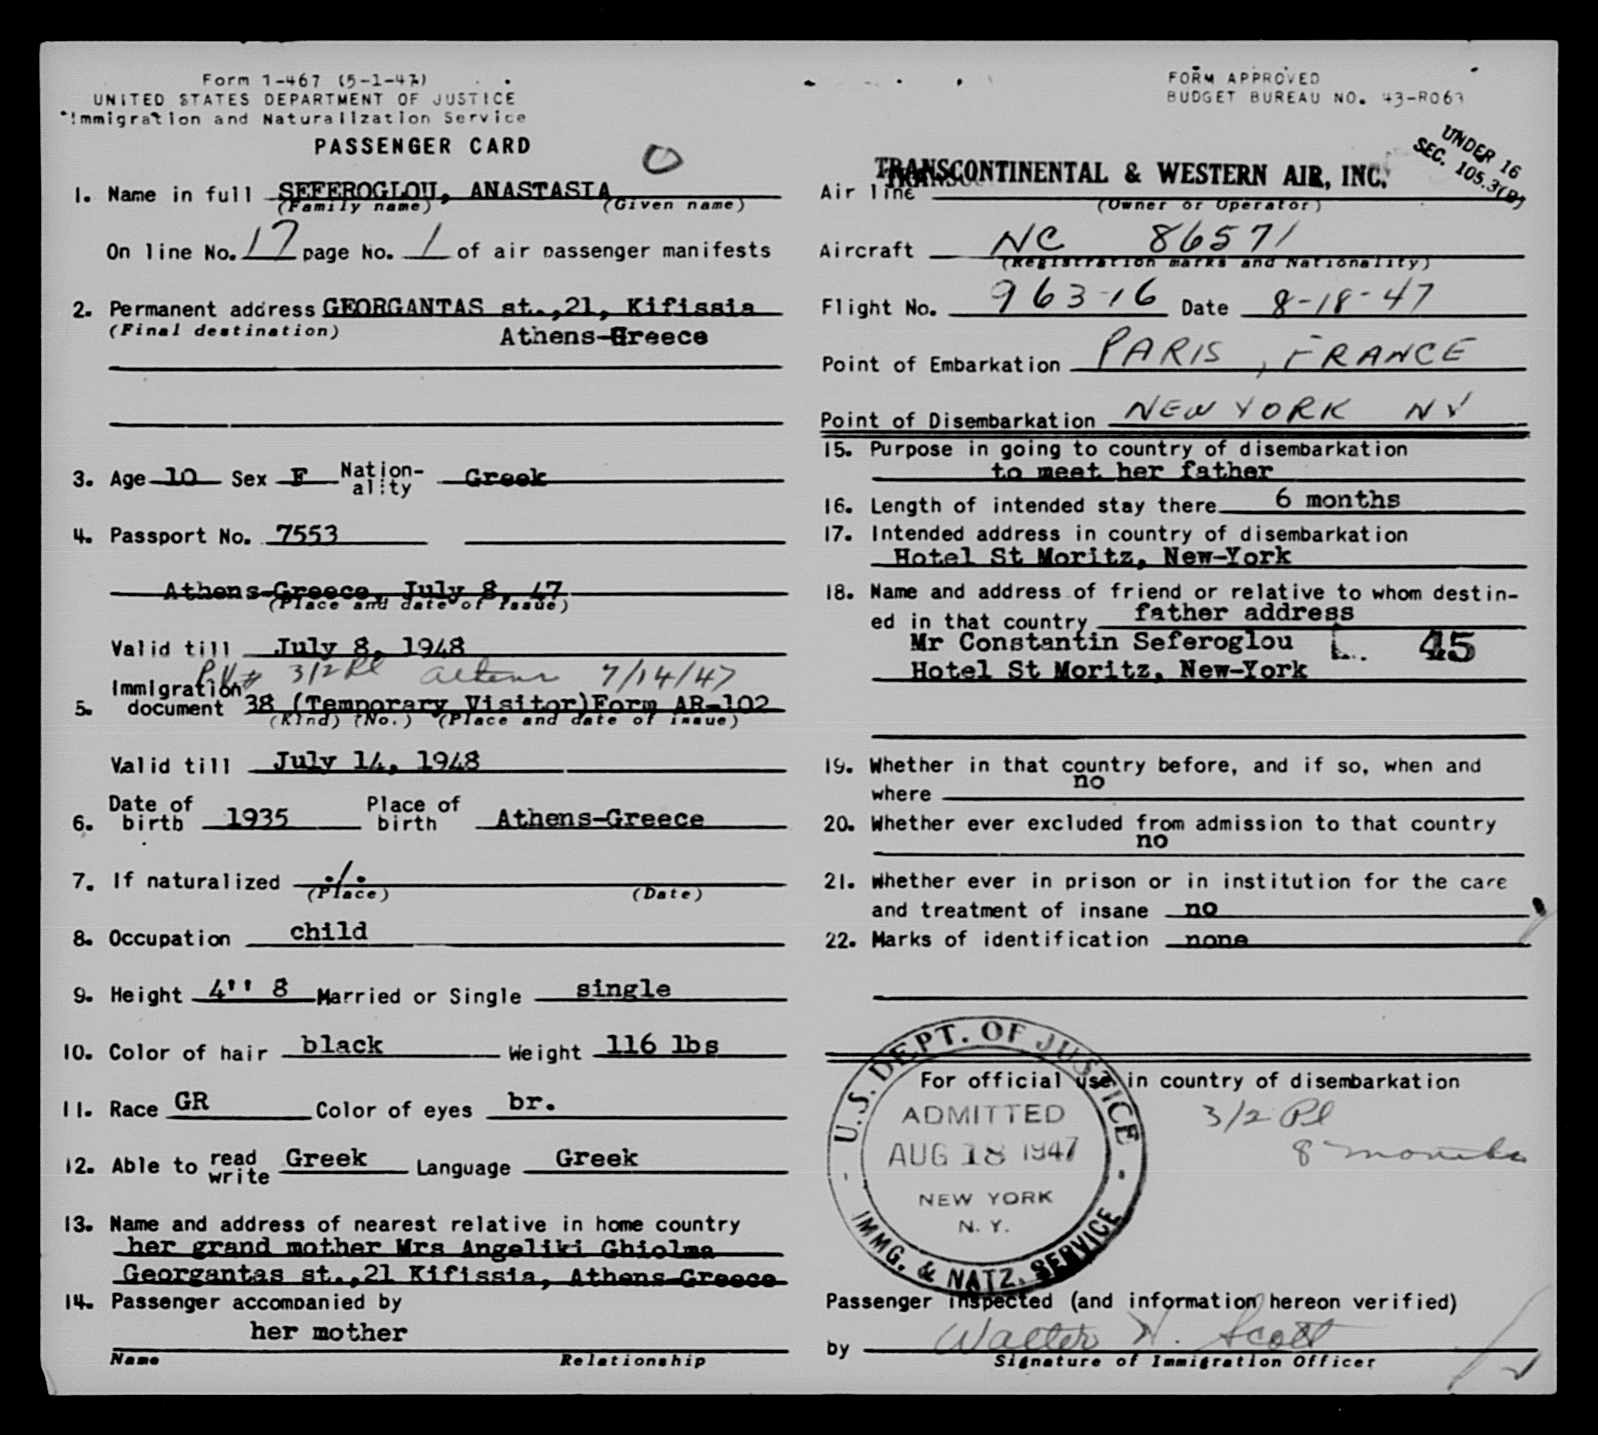 Form 1-467 (5-1-47)
UNITED STATES DEPARTMENT OF JUSTICE
Immigration and Naturalization Service
PASSENGER CARD
O
1. Name in full SEFEROGLOU, ANASTASIA
(Family name) (Given name)
On line No. 17 page No. 1 of air passenger manifests
2. Permanent address GEORGANTAS st.,21, Kifissia
(Final destination) Athens-Greece
3. Age 10 Sex F Nation-ality Greek
4. Passport No. 7553
Athens-Greece, July 8, 47
(Place and date of issue)
Valid till July 8, 1948
PV# 3/2 Pl Athens 7/14/47
5. Immigration document 38 (Temporary Visitor)Form AR-102
(Kind) (No.) (Place and date of issue)
Valid till July 14, 1948
6. Date of birth 1935 Place of birth Athens-Greece
7. If naturalized ./.
(Place) (Date)
8. Occupation child
9. Height 4'' 8 Married or Single single
10. Color of hair black Weight 116 lbs
11. Race GR Color of eyes br.
12. Able to read write Greek Language Greek
13. Name and address of nearest relative in home country
her grand mother Mrs Angeliki Ghiolma
Georgantas st.,21 Kifissia, Athens-Greece
14. Passenger accompanied by
her mother
Name Relationship
FORM APPROVED
BUDGET BUREAU NO. 43-R063
UNDER 16
SEC. 105.3(B)
Air line TRANSCONTINENTAL & WESTERN AIR, INC.
(Owner or Operator)
Aircraft NC 86571
(Registration marks and Nationality)
Flight No. 963-16 Date 8-18-47
Point of Embarkation PARIS, FRANCE
Point of Disembarkation NEW YORK NY
15. Purpose in going to country of disembarkation
to meet her father
16. Length of intended stay there 6 months
17. Intended address in country of disembarkation
Hotel St Moritz, New-York
18. Name and address of friend or relative to whom destin-
ed in that country father address
Mr Constantin Seferoglou L.. 45
Hotel St Moritz, New-York
19. Whether in that country before, and if so, when and
where no
20. Whether ever excluded from admission to that country
no
21. Whether ever in prison or in institution for the care
and treatment of insane no
22. Marks of identification none
For official use in country of disembarkation
U.S. DEPT. OF JUSTICE
ADMITTED
AUG 18 1947
NEW YORK
N. Y.
IMMG. & NATZ. SERVICE
3/2 Pl
8 months
Passenger inspected (and information hereon verified)
by Walter W. Scott
Signature of Immigration Officer